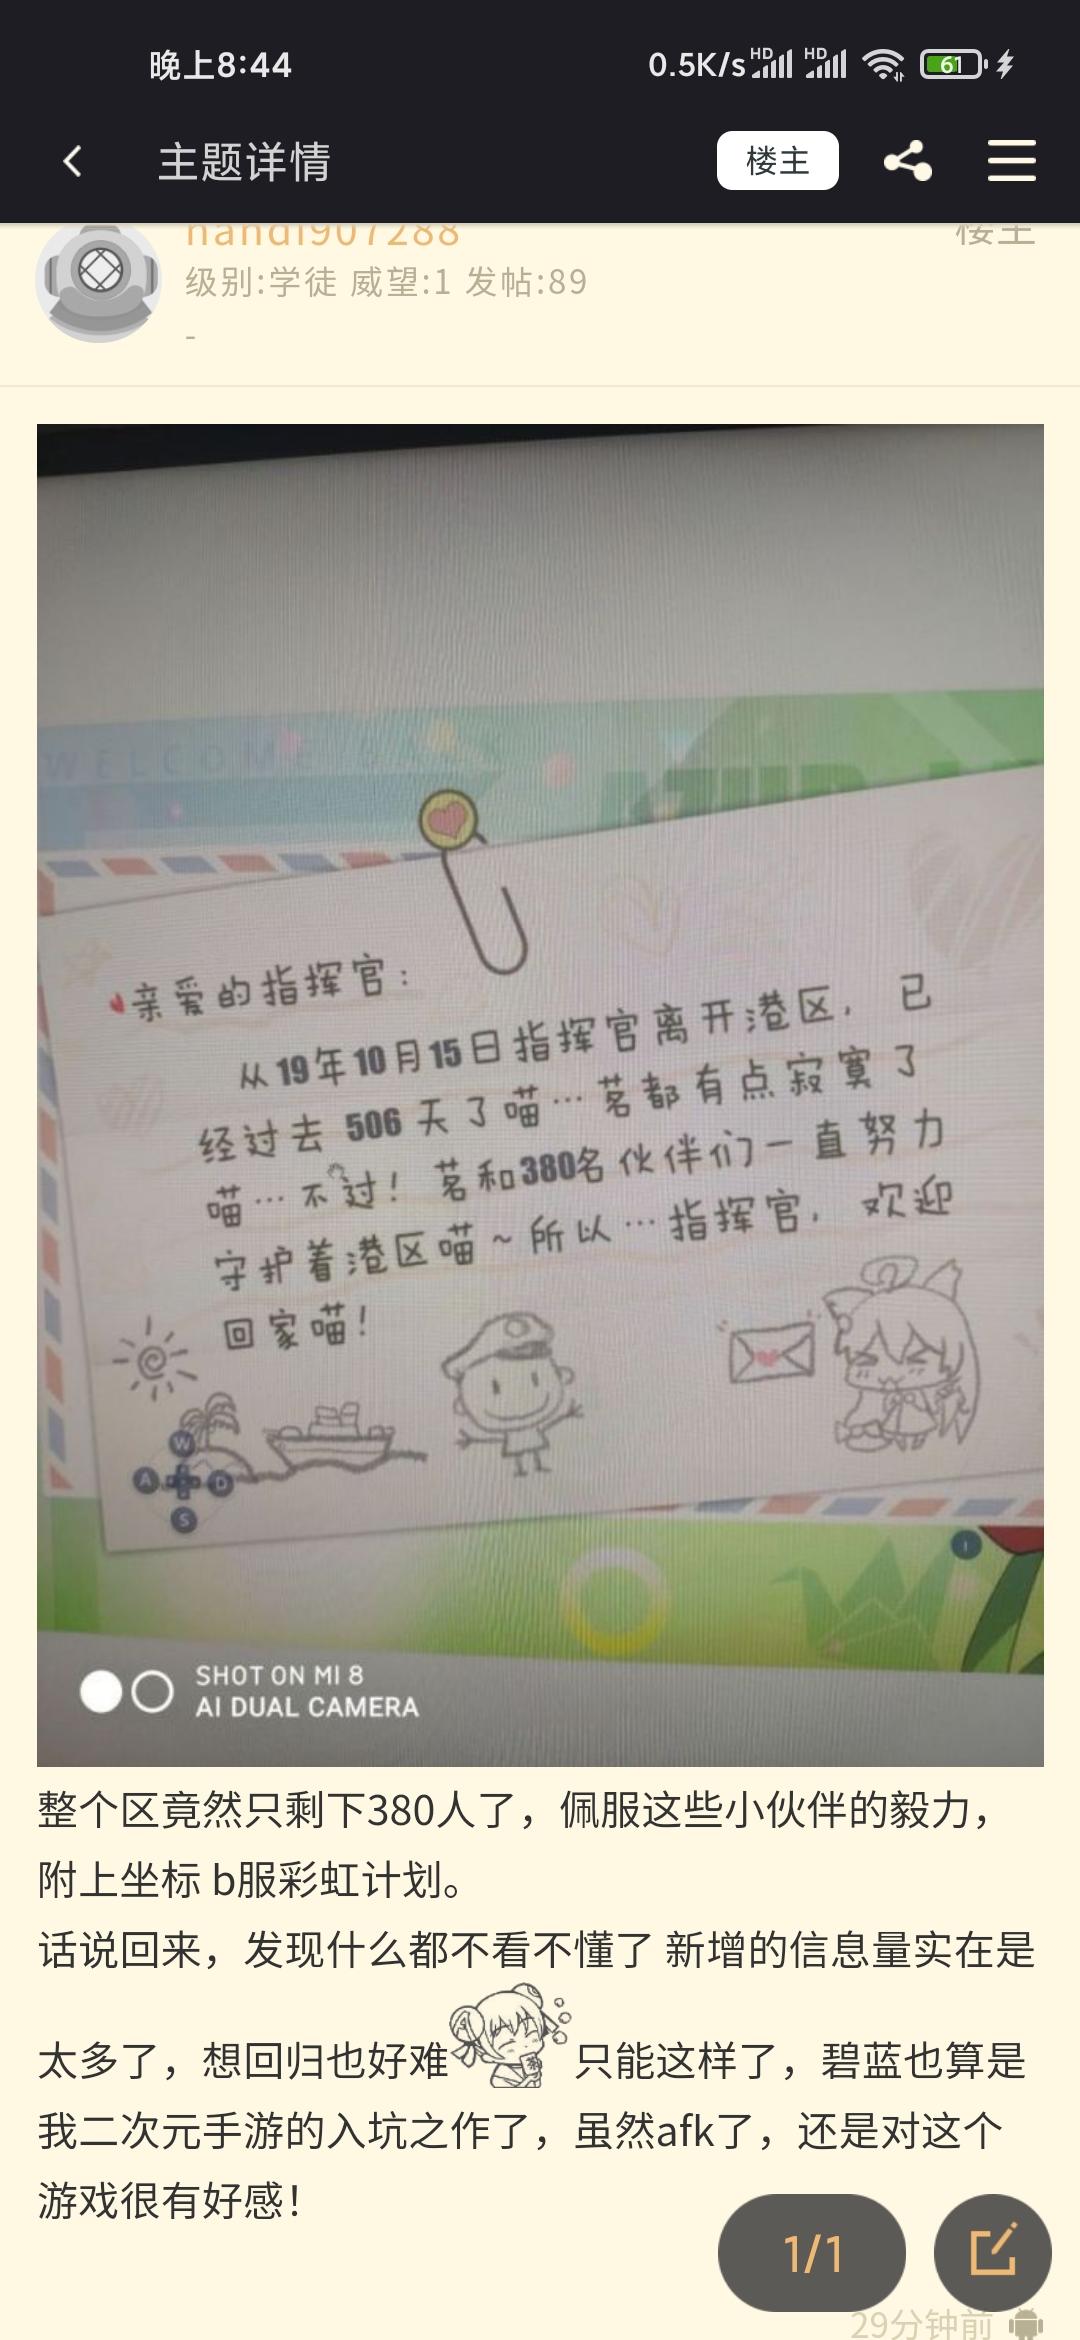 晚上8:44
0.5K/s HD HD 61
主题详情
楼主
nandi907288
楼主
级别:学徒 威望:1 发帖:89
-
WELCOME BACK
亲爱的指挥官：
从19年10月15日指挥官离开港区，已
经过去 506 天了喵…茗都有点寂寞了
喵…不过！茗和380名伙伴们一直努力
守护着港区喵~所以…指挥官，欢迎
回家喵！
W
A
D
S
I
SHOT ON MI 8
AI DUAL CAMERA
整个区竟然只剩下380人了，佩服这些小伙伴的毅力，
附上坐标 b服彩虹计划。
话说回来，发现什么都不看不懂了 新增的信息量实在是
太多了，想回归也好难 只能这样了，碧蓝也算是
我二次元手游的入坑之作了，虽然afk了，还是对这个
游戏很有好感！
1/1
29分钟前